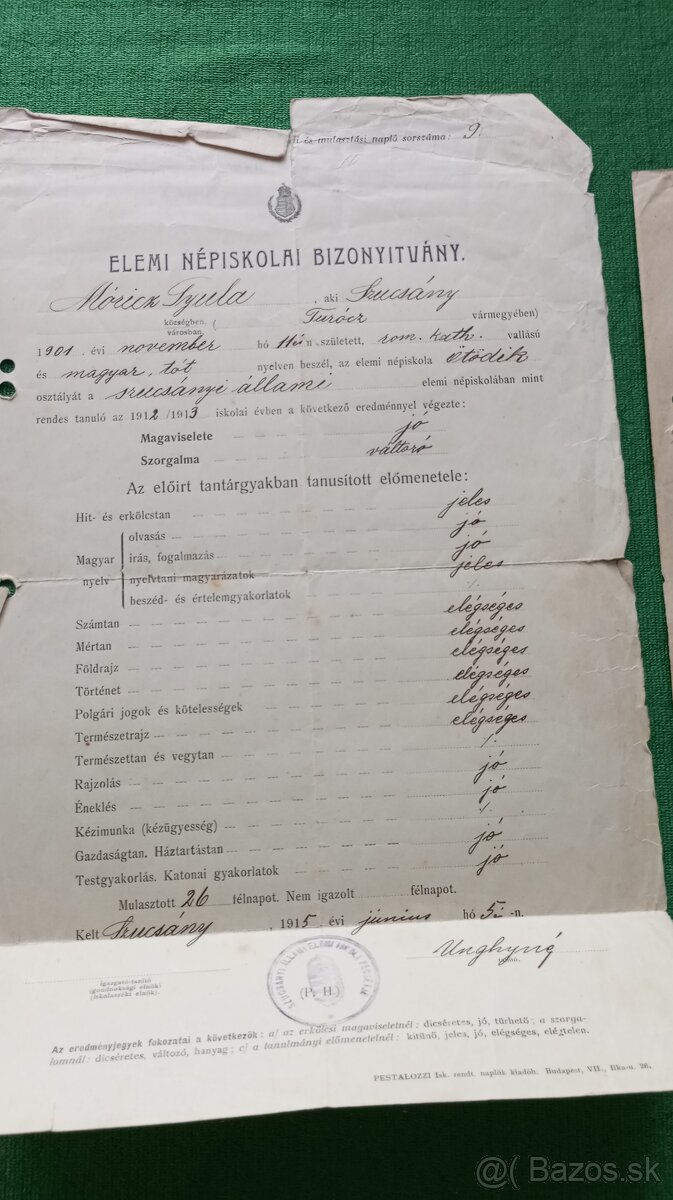 és mulasztási napló sorszáma: 9.
ELEMI NÉPISKOLAI BIZONYITVÁNY.
Móricz Gyula , aki Szucsány
községben. (
városban.
Turócz vármegyében)
1901. évi november hó 11én született, rom. kath. vallású
és magyar, tót nyelven beszél, az elemi népiskola ötödik
osztályát a szucsányi állami elemi népiskolában mint
rendes tanuló az 1912/1913 iskolai évben a következő eredménnyel végezte:
Magaviselete jó
Szorgalma változó
Az előirt tantárgyakban tanusított előmenetele:
Hit- és erkölcstan jeles
Magyar nyelv
olvasás jó
irás, fogalmazás jó
nyelvtani magyarázatok jeles
beszéd- és értelemgyakorlatok ·/·
Számtan elégséges
Mértan elégséges
Földrajz elégséges
Történet elégséges
Polgári jogok és kötelességek elégséges
Természetrajz elégséges
Természettan és vegytan ·/·
Rajzolás jó
Éneklés jó
Kézimunka (kézügyesség) ·/·
Gazdaságtan. Háztartástan jó
Testgyakorlás. Katonai gyakorlatok jó
Mulasztott 26 félnapot. Nem igazolt félnapot.
Kelt Szucsány , 1915. évi június hó 5én.
igazgató-tanító
(gondnoksági elnök)
(iskolaszéki elnök).
(P. H.)
Az eredményjegyek fokozatai a következők: a/ az erkölcsi magaviseletnél: dicséretes, jó, türhető; a szorga-
lomnál: dicséretes, változó, hanyag; c/ a tanulmányi előmenetelnél: kitünő, jeles, jó, elégséges, elégtelen.
PESTALOZZI Isk. rendt. naplók kiadóh. Budapest, VII., Ilka-u. 26.
@ Bazos.sk